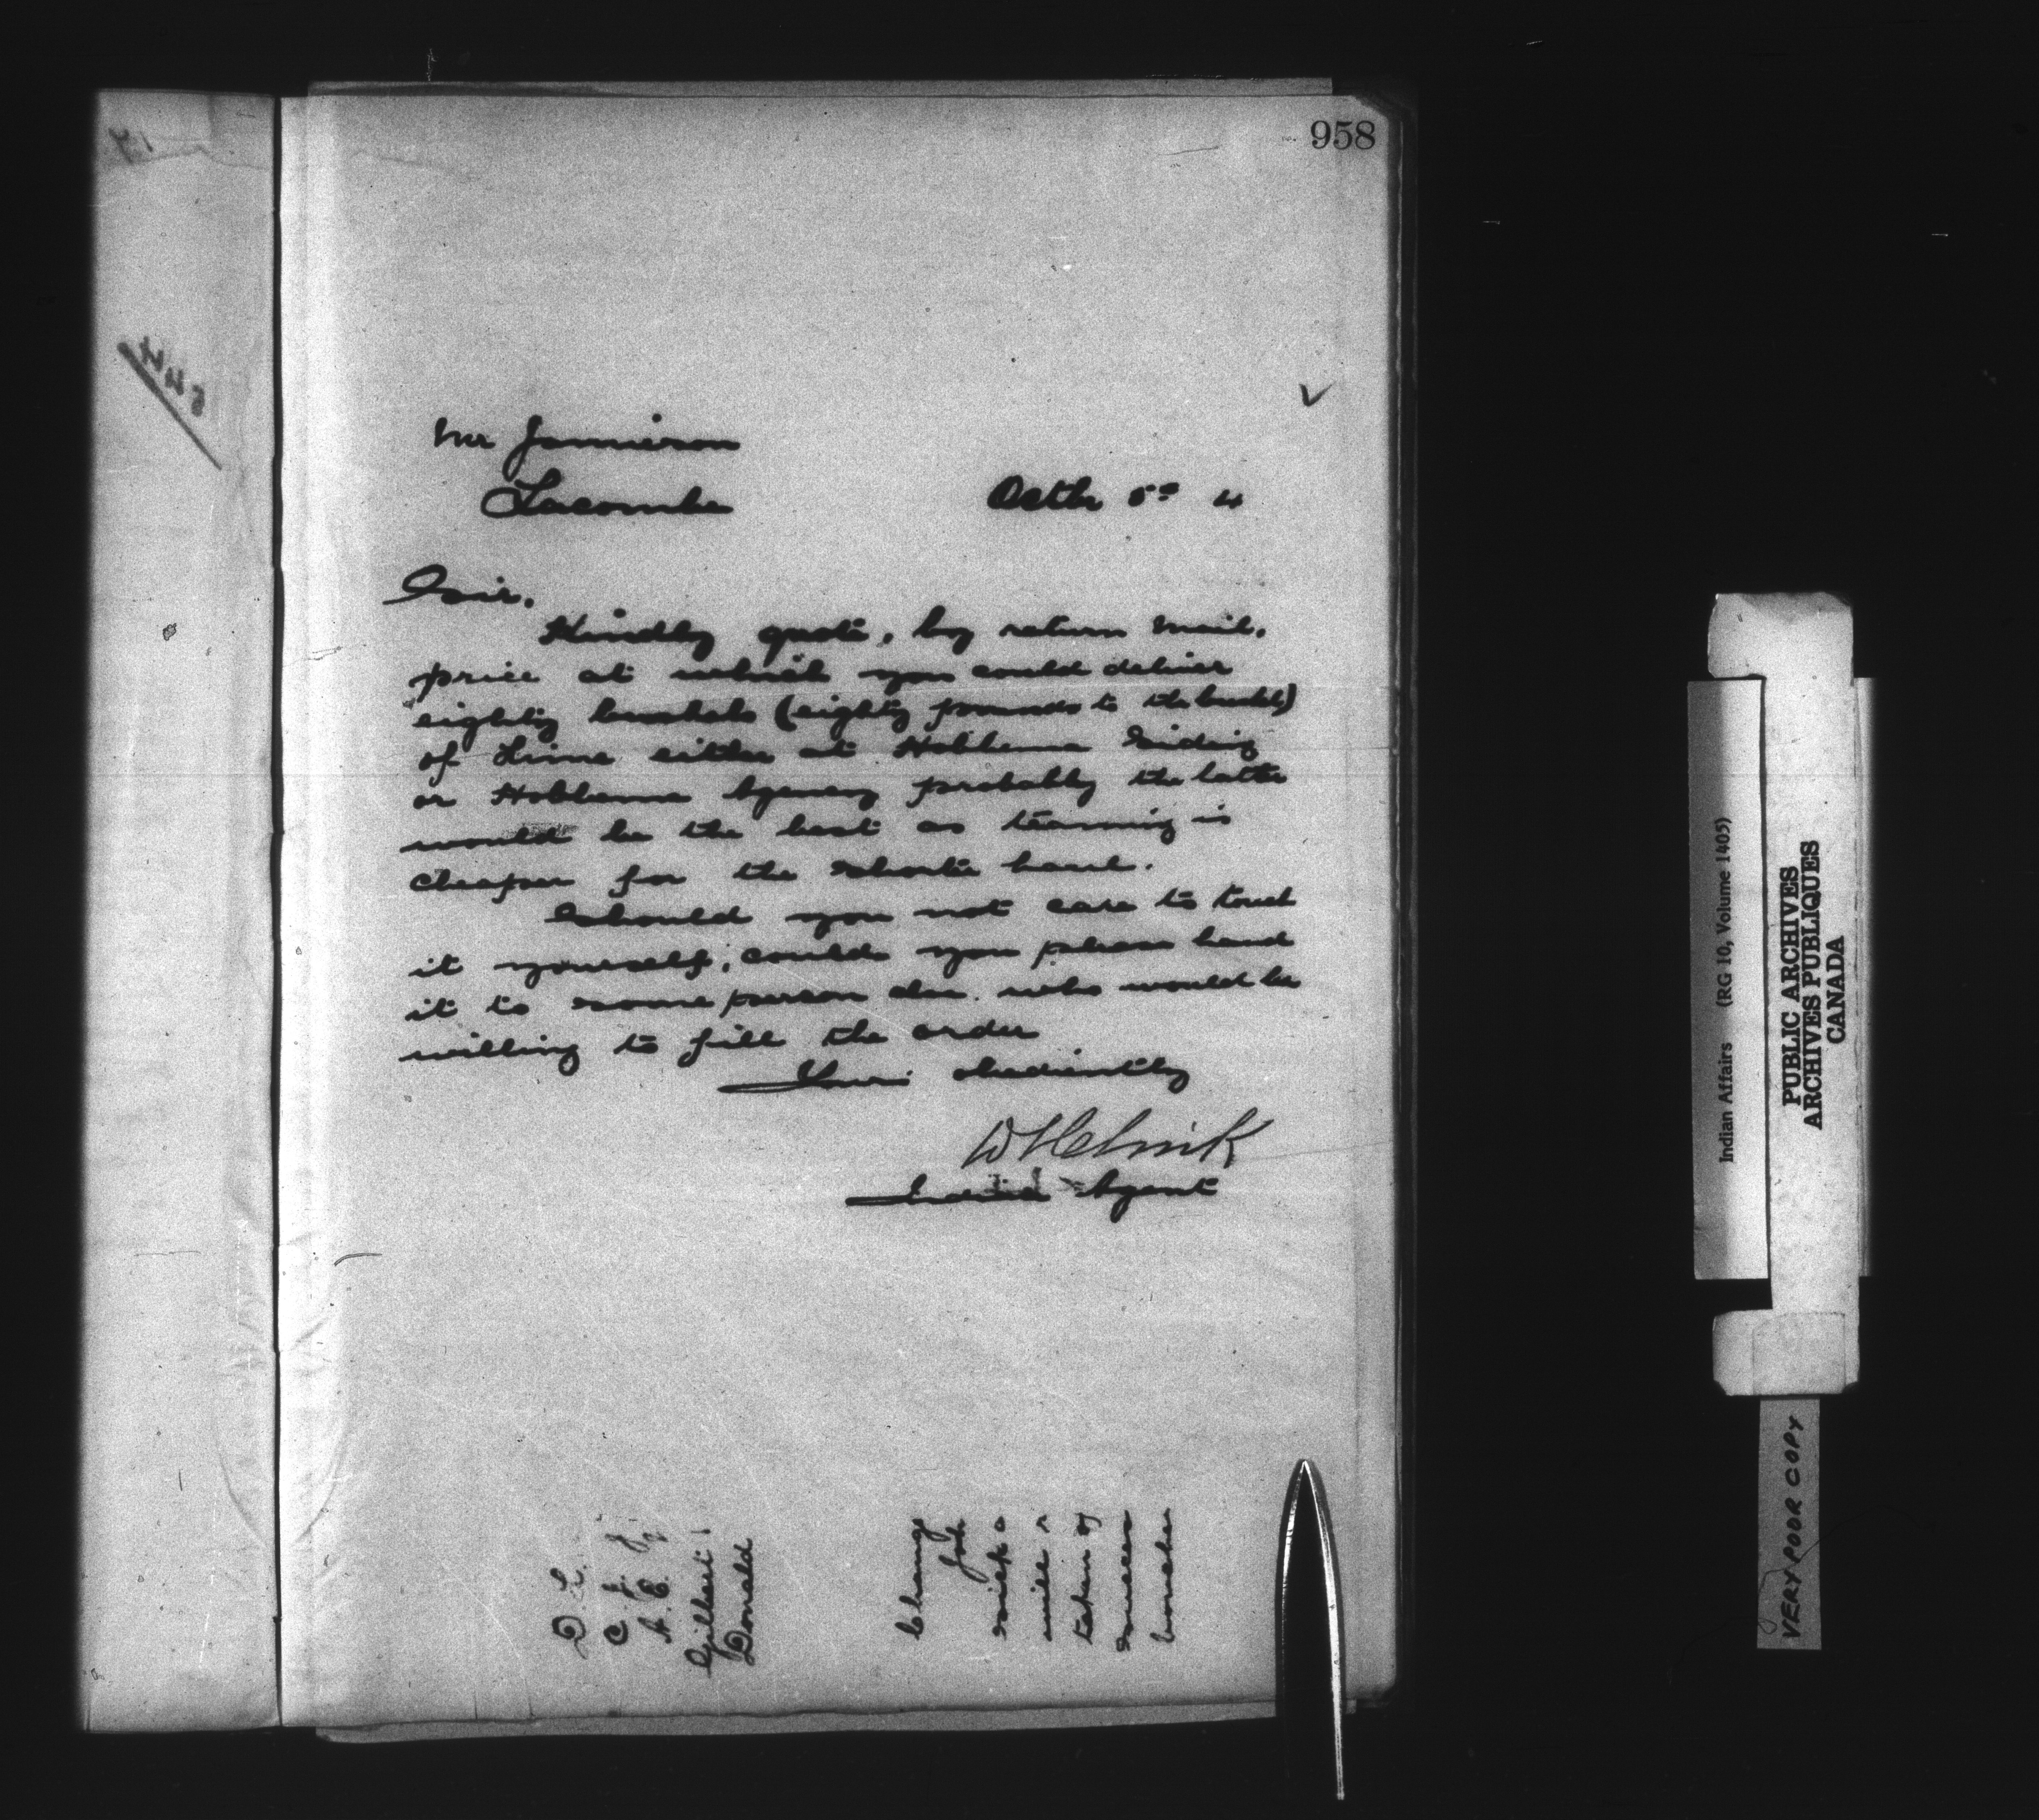 958
Mr Jamieson
Lacombe
Octbr 5th 4
Sir,
Kindly quote, by return mail,
price at which you could deliver
eighty bushels (eighty pounds to the bushel)
of Lime either at Hobbema Siding
or Hobbema Agency probably the latter
would be the best as teaming is
cheaper for the shorter haul.
Should you not care to touch
it yourself, could you please hand
it to some person else who would be
willing to fill the order
Yours obediently
Indian Agent
D. L.
C. J.
A. E.
Gilbert
Donald
Change
Job
will
taken of
Indian Affairs (RG 10, Volume 1405)
PUBLIC ARCHIVES
ARCHIVES PUBLIQUES
CANADA
VERY POOR COPY